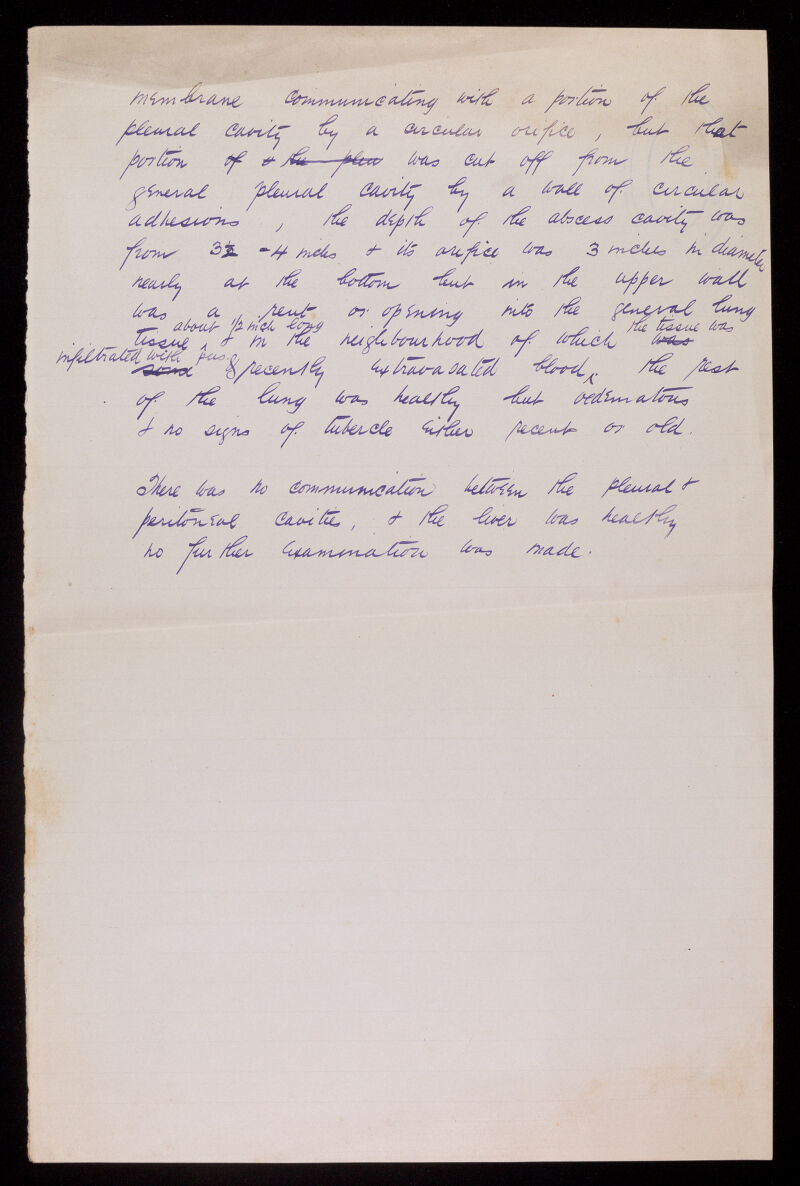 membrane communicating with a portion of the
pleural cavity by a circular orifice, but that
portion of & the pleu was cut off from the
general pleural cavity by a wall of circular
adhesions, the depth of the abscess cavity was
from 3 - 4 inches & its orifice was 3 inches in diameter
nearly at the bottom but in the upper wall
was a rent or opening into the general lung
about 1/2 inch long the tissue was
tissue & in the neighbourhood of which was
infiltrated with pus
& recently extravasated blood. the rest
of the lung was healthy but oedematous
& no signs of tubercle either recent or old.
There was no communication between the pleural &
peritoneal cavities, & the liver was healthy
no further examination was made.